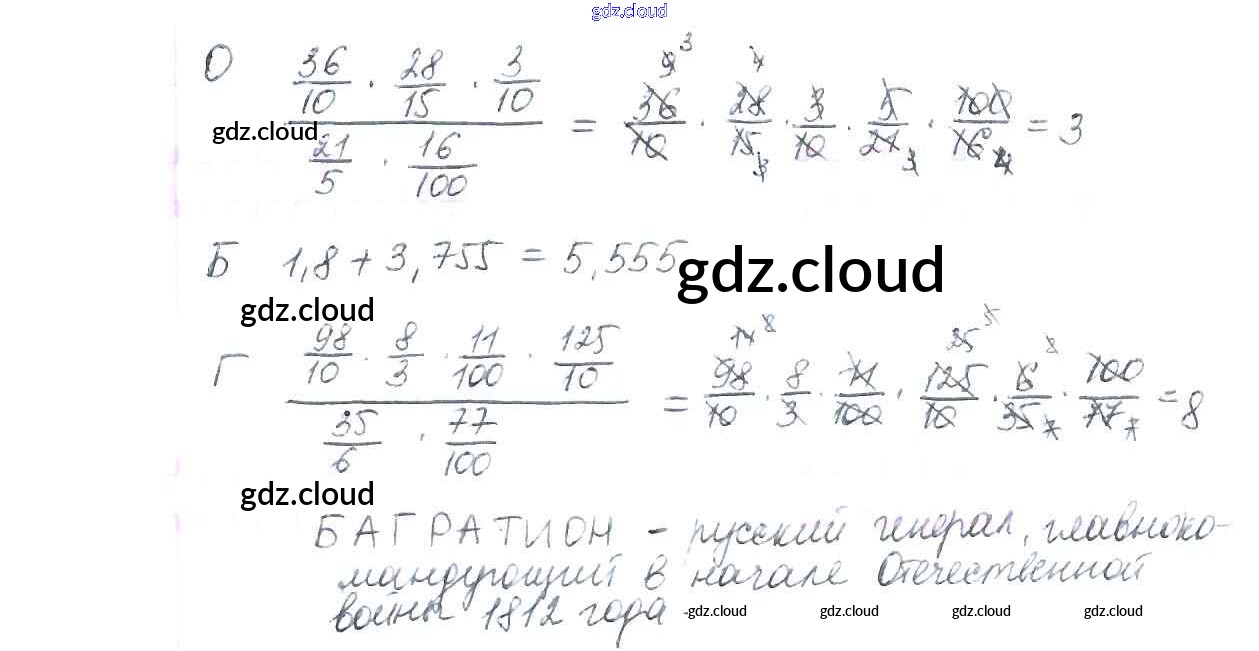 gdz.cloud
О 36/10 · 28/15 · 3/10 / 21/5 · 16/100 = 36/10 · 28/15 · 3/10 · 5/21 · 100/16 = 3
gdz.cloud
Б 1,8 + 3,755 = 5,555
gdz.cloud
gdz.cloud
Г 98/10 · 8/3 · 11/100 · 125/10 / 35/6 · 77/100 = 98/10 · 8/3 · 11/100 · 125/10 · 6/35 · 100/77 = 8
gdz.cloud
БАГРАТИОН - русский генерал, главноко-
мандующий в начале Отечественной
войны 1812 года
gdz.cloud gdz.cloud gdz.cloud gdz.cloud